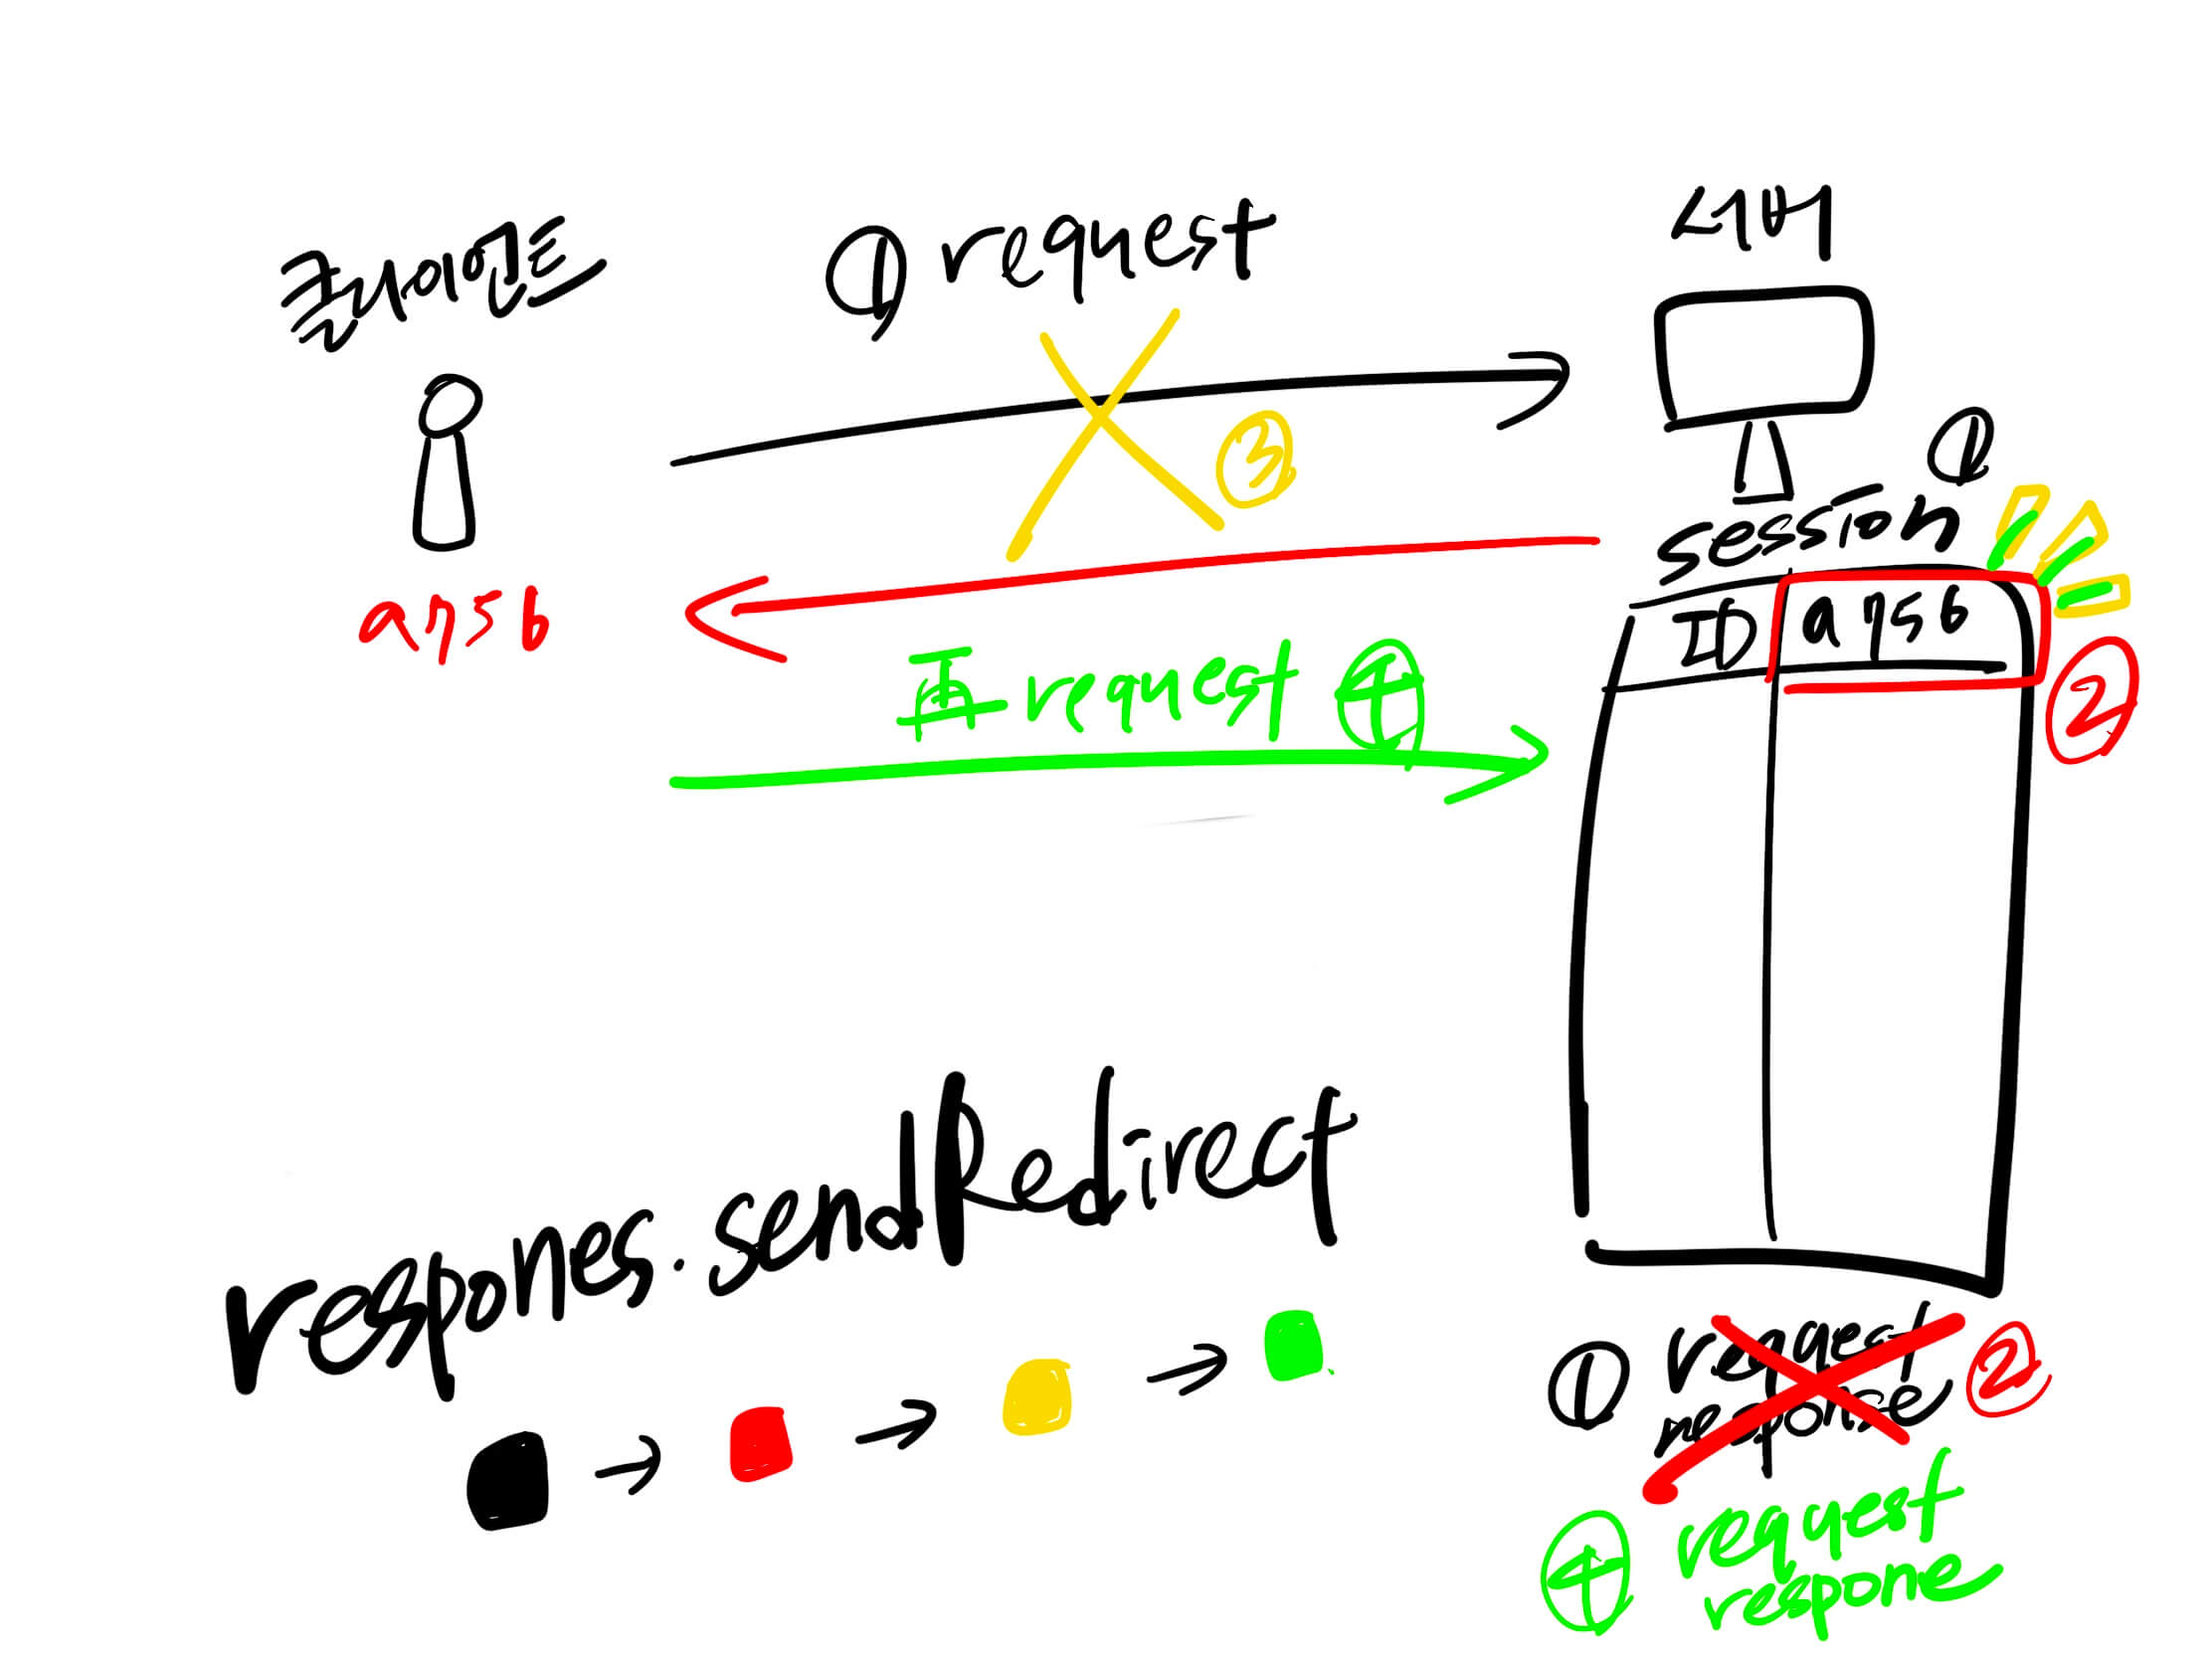 서버
클라이언트
① request
③
①
session
ID a756
a756
②
再 request ④
respones.sendRedirect
① request
response ②
④ request
respone